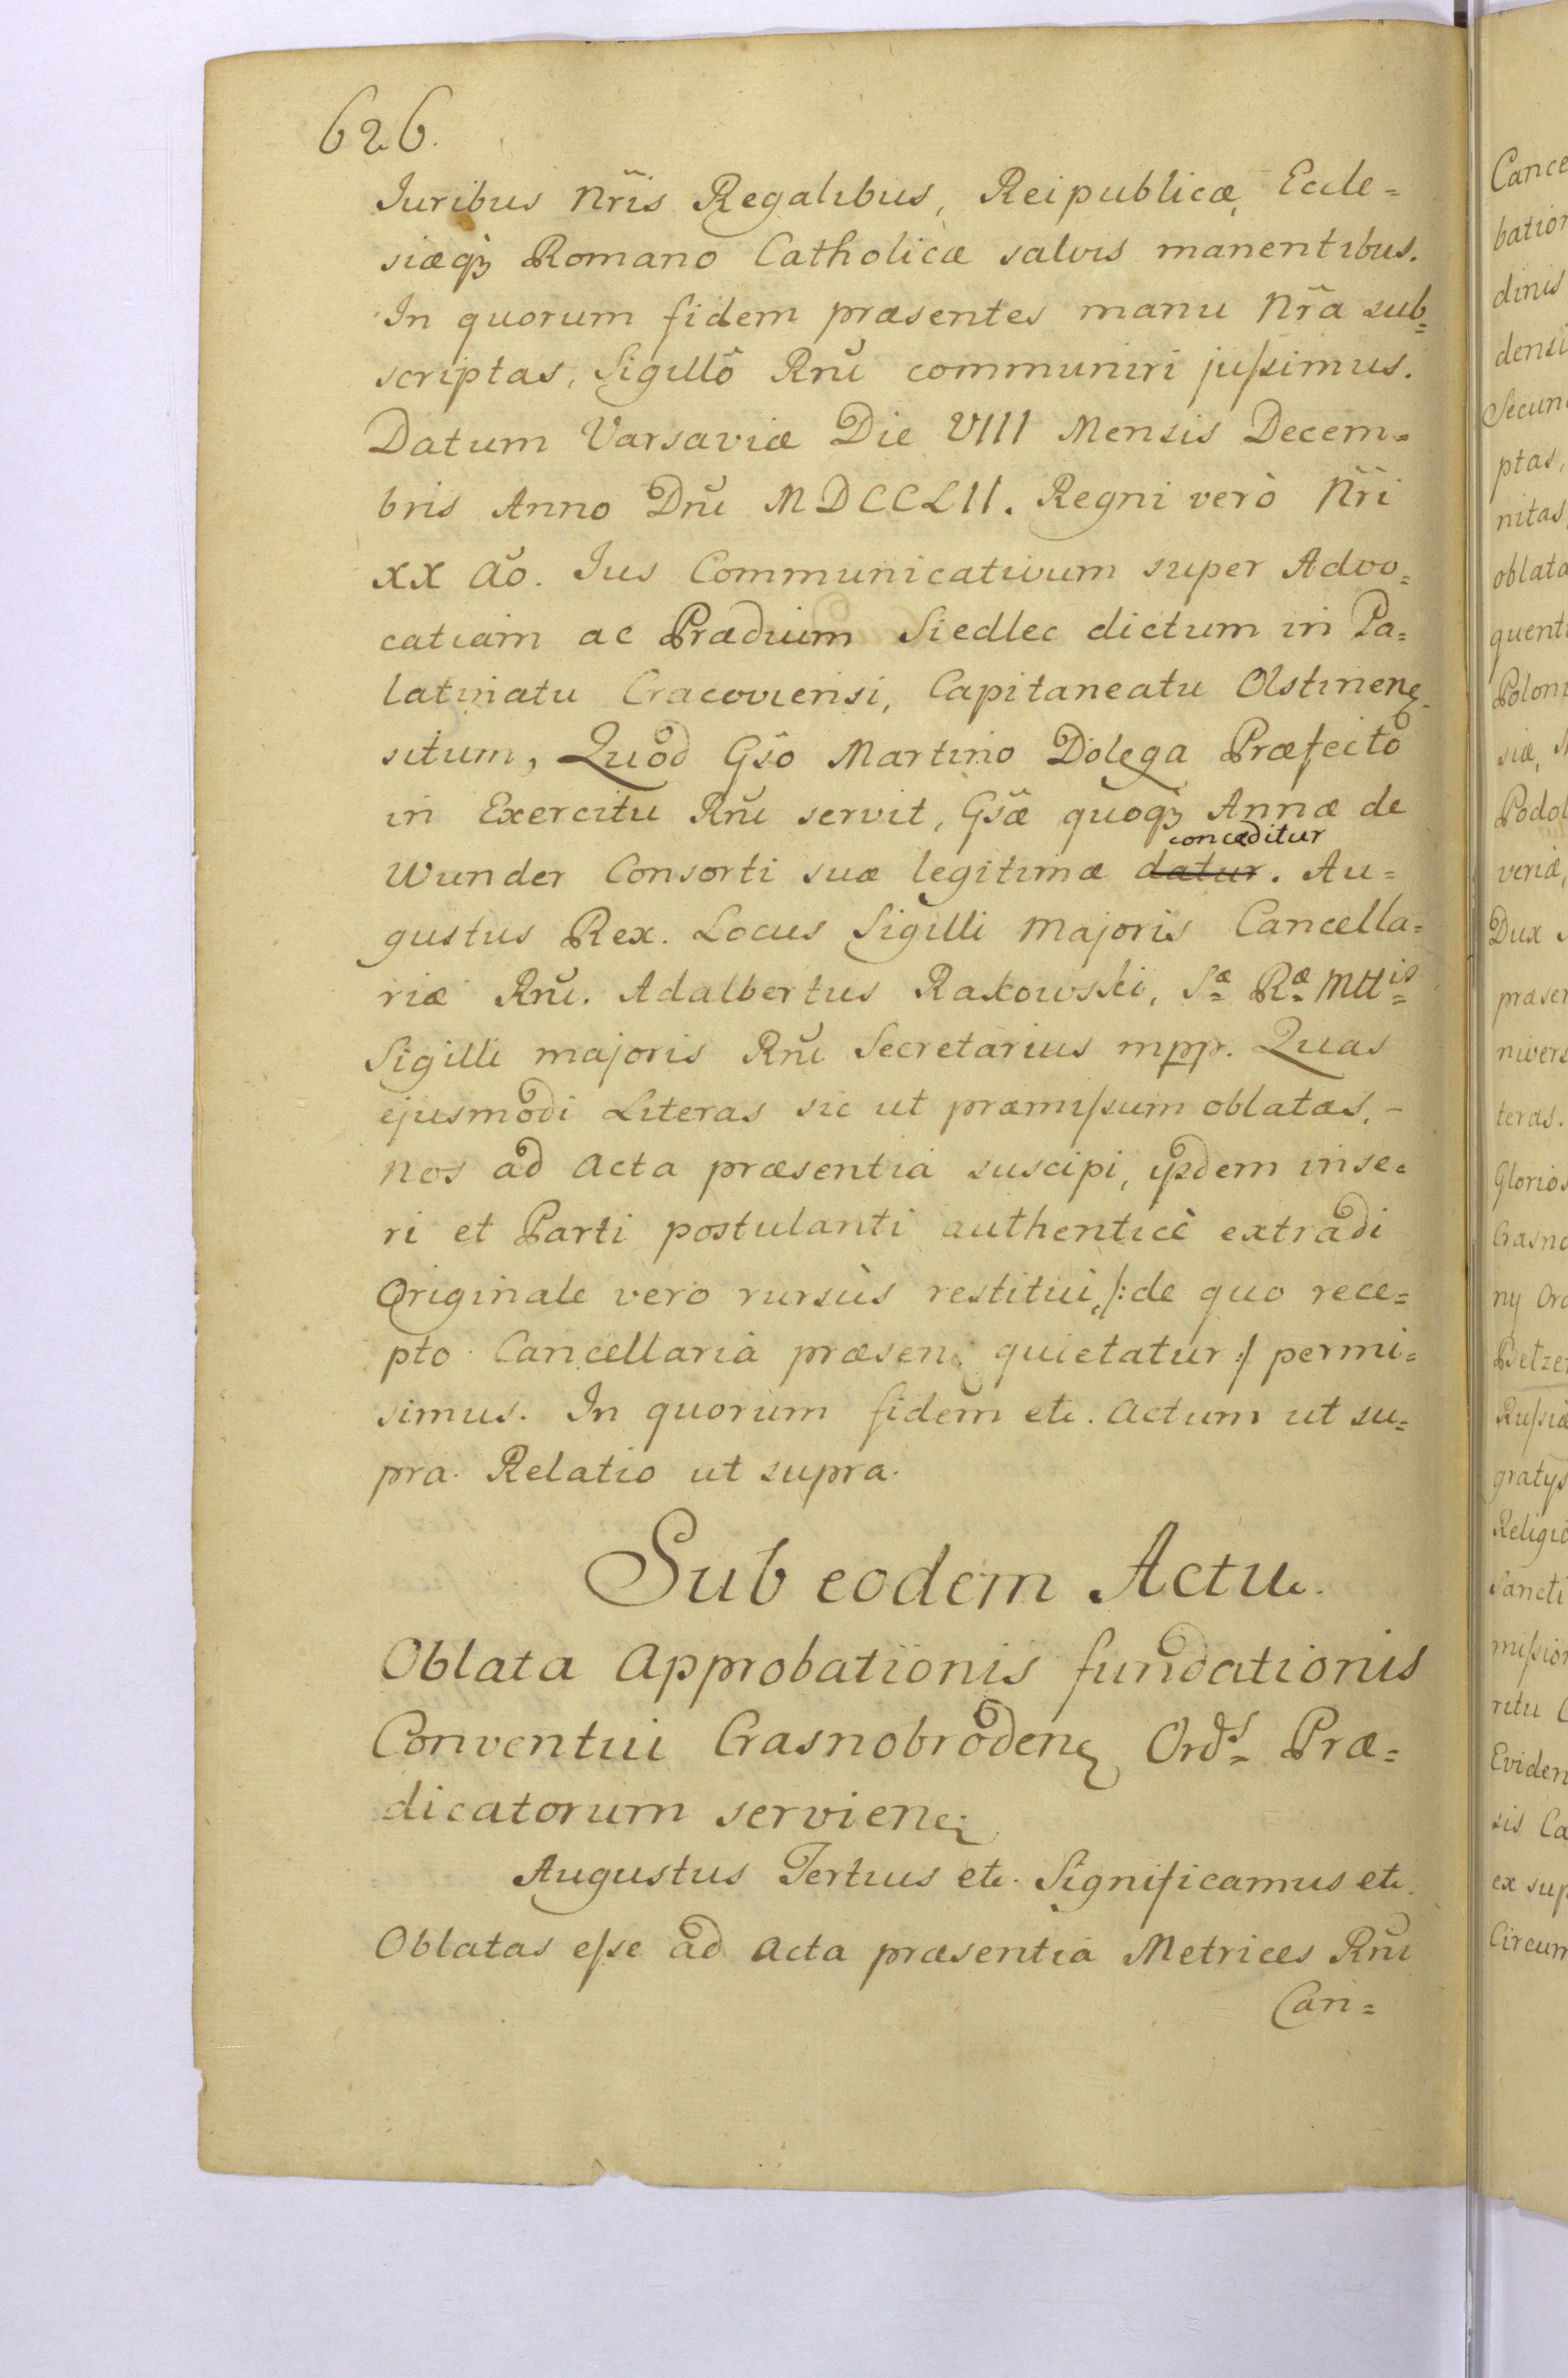 626.
Juribus Nr̃is Regalibus, Reipublicæ, Eccle=
siæqꝫ Romano Catholicæ salvis manentibus.
In quorum fidem præsentes manu Nr̃a sub=
scriptas, Sigillô Rnĩ communiri jussimus.
Datum Varsaviæ Die VIII Mensis Decem=
bris Anno Dnĩ MDCCLII. Regni verò Nr̃i
XX Aõ. Jus Communicativum super Advo=
catiam ac Prædium Siedlec dictum in Pa=
latinatu Cracoviensi, Capitaneatu Olstinenꝫ
situm, Quod Gsõ Martino Dolega Præfecto
in Exercitu Rnĩ servit, Gsæ̃ quoqꝫ Annæ de
conceditur
Wunder Consorti suæ legitimæ datur. Au=
gustus Rex. Locus Sigilli Majoris Cancella=
riæ Rnĩ. Adalbertus Rakowski, Sæ Ræ Mttis
Sigilli majoris Rnĩ Secretarius mpp. Quas
ejusmodi Literas sic ut præmissum oblatas, -
nos ad Acta præsentia suscipi, ijsdem inse=
ri et Parti postulanti authenticè extradi
Originale vero rursùs restitui, /: de quo rece=
pto Cancellaria præsenꝫ quietatur :/ permi=
simus. In quorum fidem etc. Actum ut su=
pra. Relatio ut supra.
Sub eodem Actu.
Oblata Approbationis fundationis
Conventui Crasnobrodenꝫ Ords Præ=
dicatorum servienꝫ
Augustus Tertius etc. Significamus etc.
Oblatas esse ad Acta præsentia Metrices Rnĩ
Can=
Cance
bation
dinis
densi
Secun
ptas,
nitas
oblata
quenti
Poloni
siæ, 
Podol
veriæ,
Dux
præsen
nivers
teras.
Glorios
Crasno
ny Ord
Betze
Russiæ
gratys
Religio
Sancti
mission
ritu C
Eviden
sis Ca
ex sup
Circum